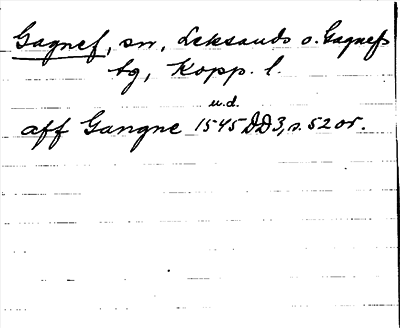 Gagnef, sn, Leksands o. Gagnefs
tg, Kopp. l.
u.d.
aff Gangne 1545 DD3, s. 52 or.